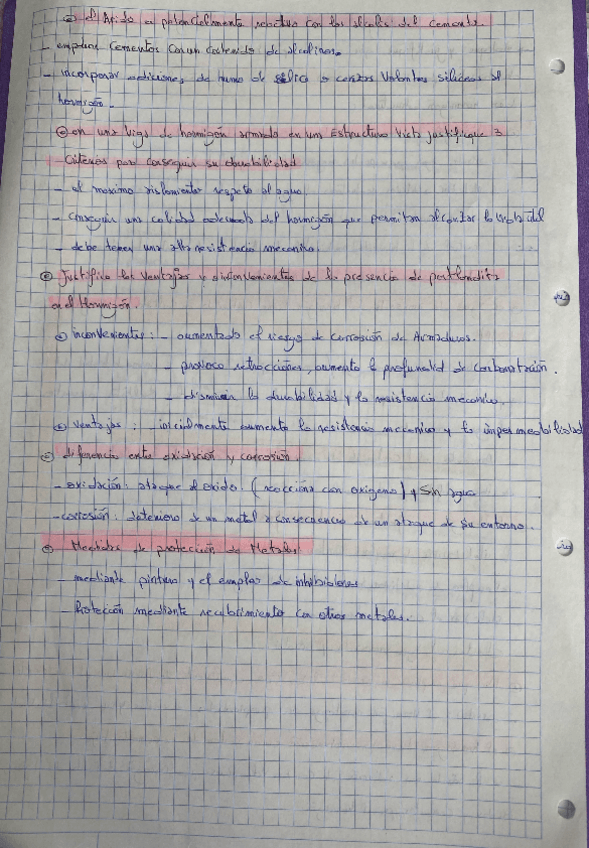 ⊙ el Árido a potencialmente reactivo con los alcalis del cemento
- emplear Cementos Con un contenido de alcalinos.
- incorporar adiciones de humo de silice o cenizas Volantes siliceas al
hormigón.
⊙ en una viga de hormigón armado en un Estructura Vista justifique 3
Criterios por conseguir su durabilidad
- el maximo aislamiento respeto al agua.
- conseguir una calidad adecuada del hormigón que permitan alcanzar la vida útil
- debe tener una alta resistencia mecanica.
⊙ Justifica las Ventajas y inconvenientes de la presencia de portlandita
en el Hormigón.
⊙ inconvenientes : - aumentado el riesgo de Corrosión de Armaduras.
- provoca retracciones, aumenta la profundid de Carbonatación.
- disminuir la durabilidad y la resistencia mecanica.
⊙ Ventajas : - inicialmente aumenta la resistencia mecanica y la impermeabilidad
⊙ diferencia entre oxidación y corrosión.
- oxidación: ataque al oxido. (reacciona con oxigeno) y Sin agua
- corrosión: deterioro de un metal a consecuencia de un ataque de su entorno.
⊙ Medidas de protección de Metales
- mediante pintura y el emplao de inhibidores
- Protección mediante recubrimiento con otros metales.